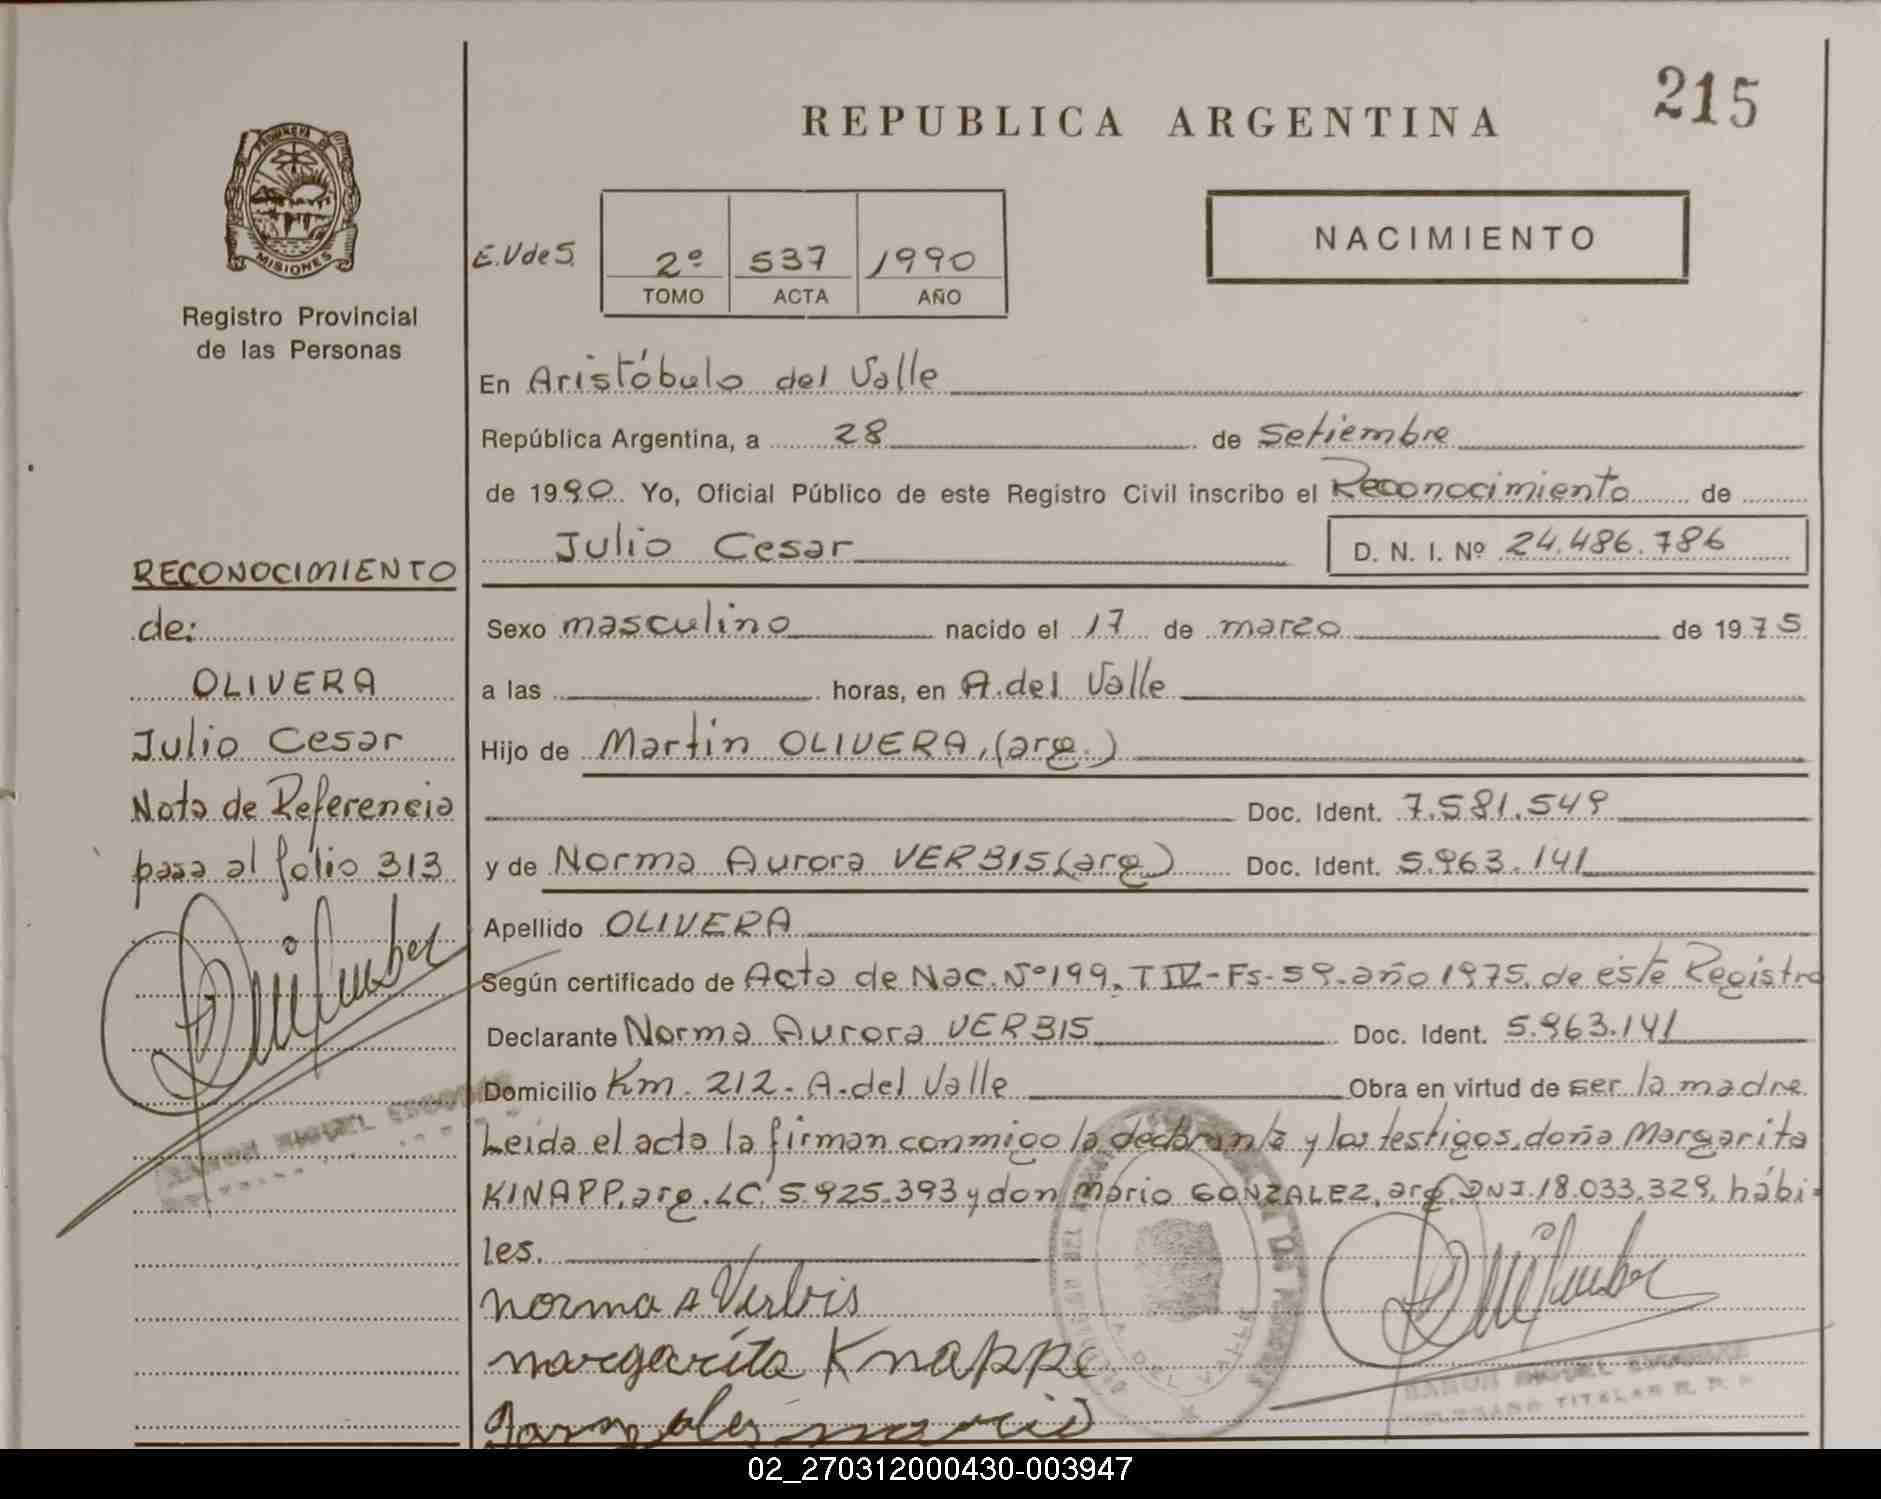 215
REPUBLICA ARGENTINA
PROVINCIA
MISIONES
Registro Provincial
de las Personas
E.V de S.
2º 537 1990
TOMO ACTA AÑO
NACIMIENTO
En Aristóbulo del Valle
República Argentina, a 28 de Setiembre
de 1990. Yo, Oficial Público de este Registro Civil inscribo el Reconocimiento de
Julio Cesar D. N. I. Nº 24.486.786
Sexo masculino nacido el 17 de marzo de 1975
a las horas, en A. del Valle
Hijo de Martin OLIVERA, (arg.)
Doc. Ident. 7.581.549
y de Norma Aurora VERBIS (arg) Doc. Ident. 5.963.141
Apellido OLIVERA
Según certificado de Acta de Nac. Nº 199. T IV - Fs - 59 - año 1975. de éste Registro
Declarante Norma Aurora VERBIS Doc. Ident. 5.963.141
Domicilio Km. 212 - A. del Valle Obra en virtud de ser la madre
Leida el acta la firman conmigo la declarante y los testigos, doña Margarita
KINAPP, arg. LC. 5.925.393 y don Mario GONZALEZ, arg. DNI. 18.033.329, hábi-
les.
Norma A Verbis
margarita Knappe
Gonzales mario
RECONOCIMIENTO
de:
OLIVERA
Julio Cesar
Nota de Referencia
pasa al folio 313
RAMON MIGUEL ESCOBAR
RAMON MIGUEL ESCOBAR
TITULAR R. P. P.
A. DEL VALLE
02_270312000430-003947